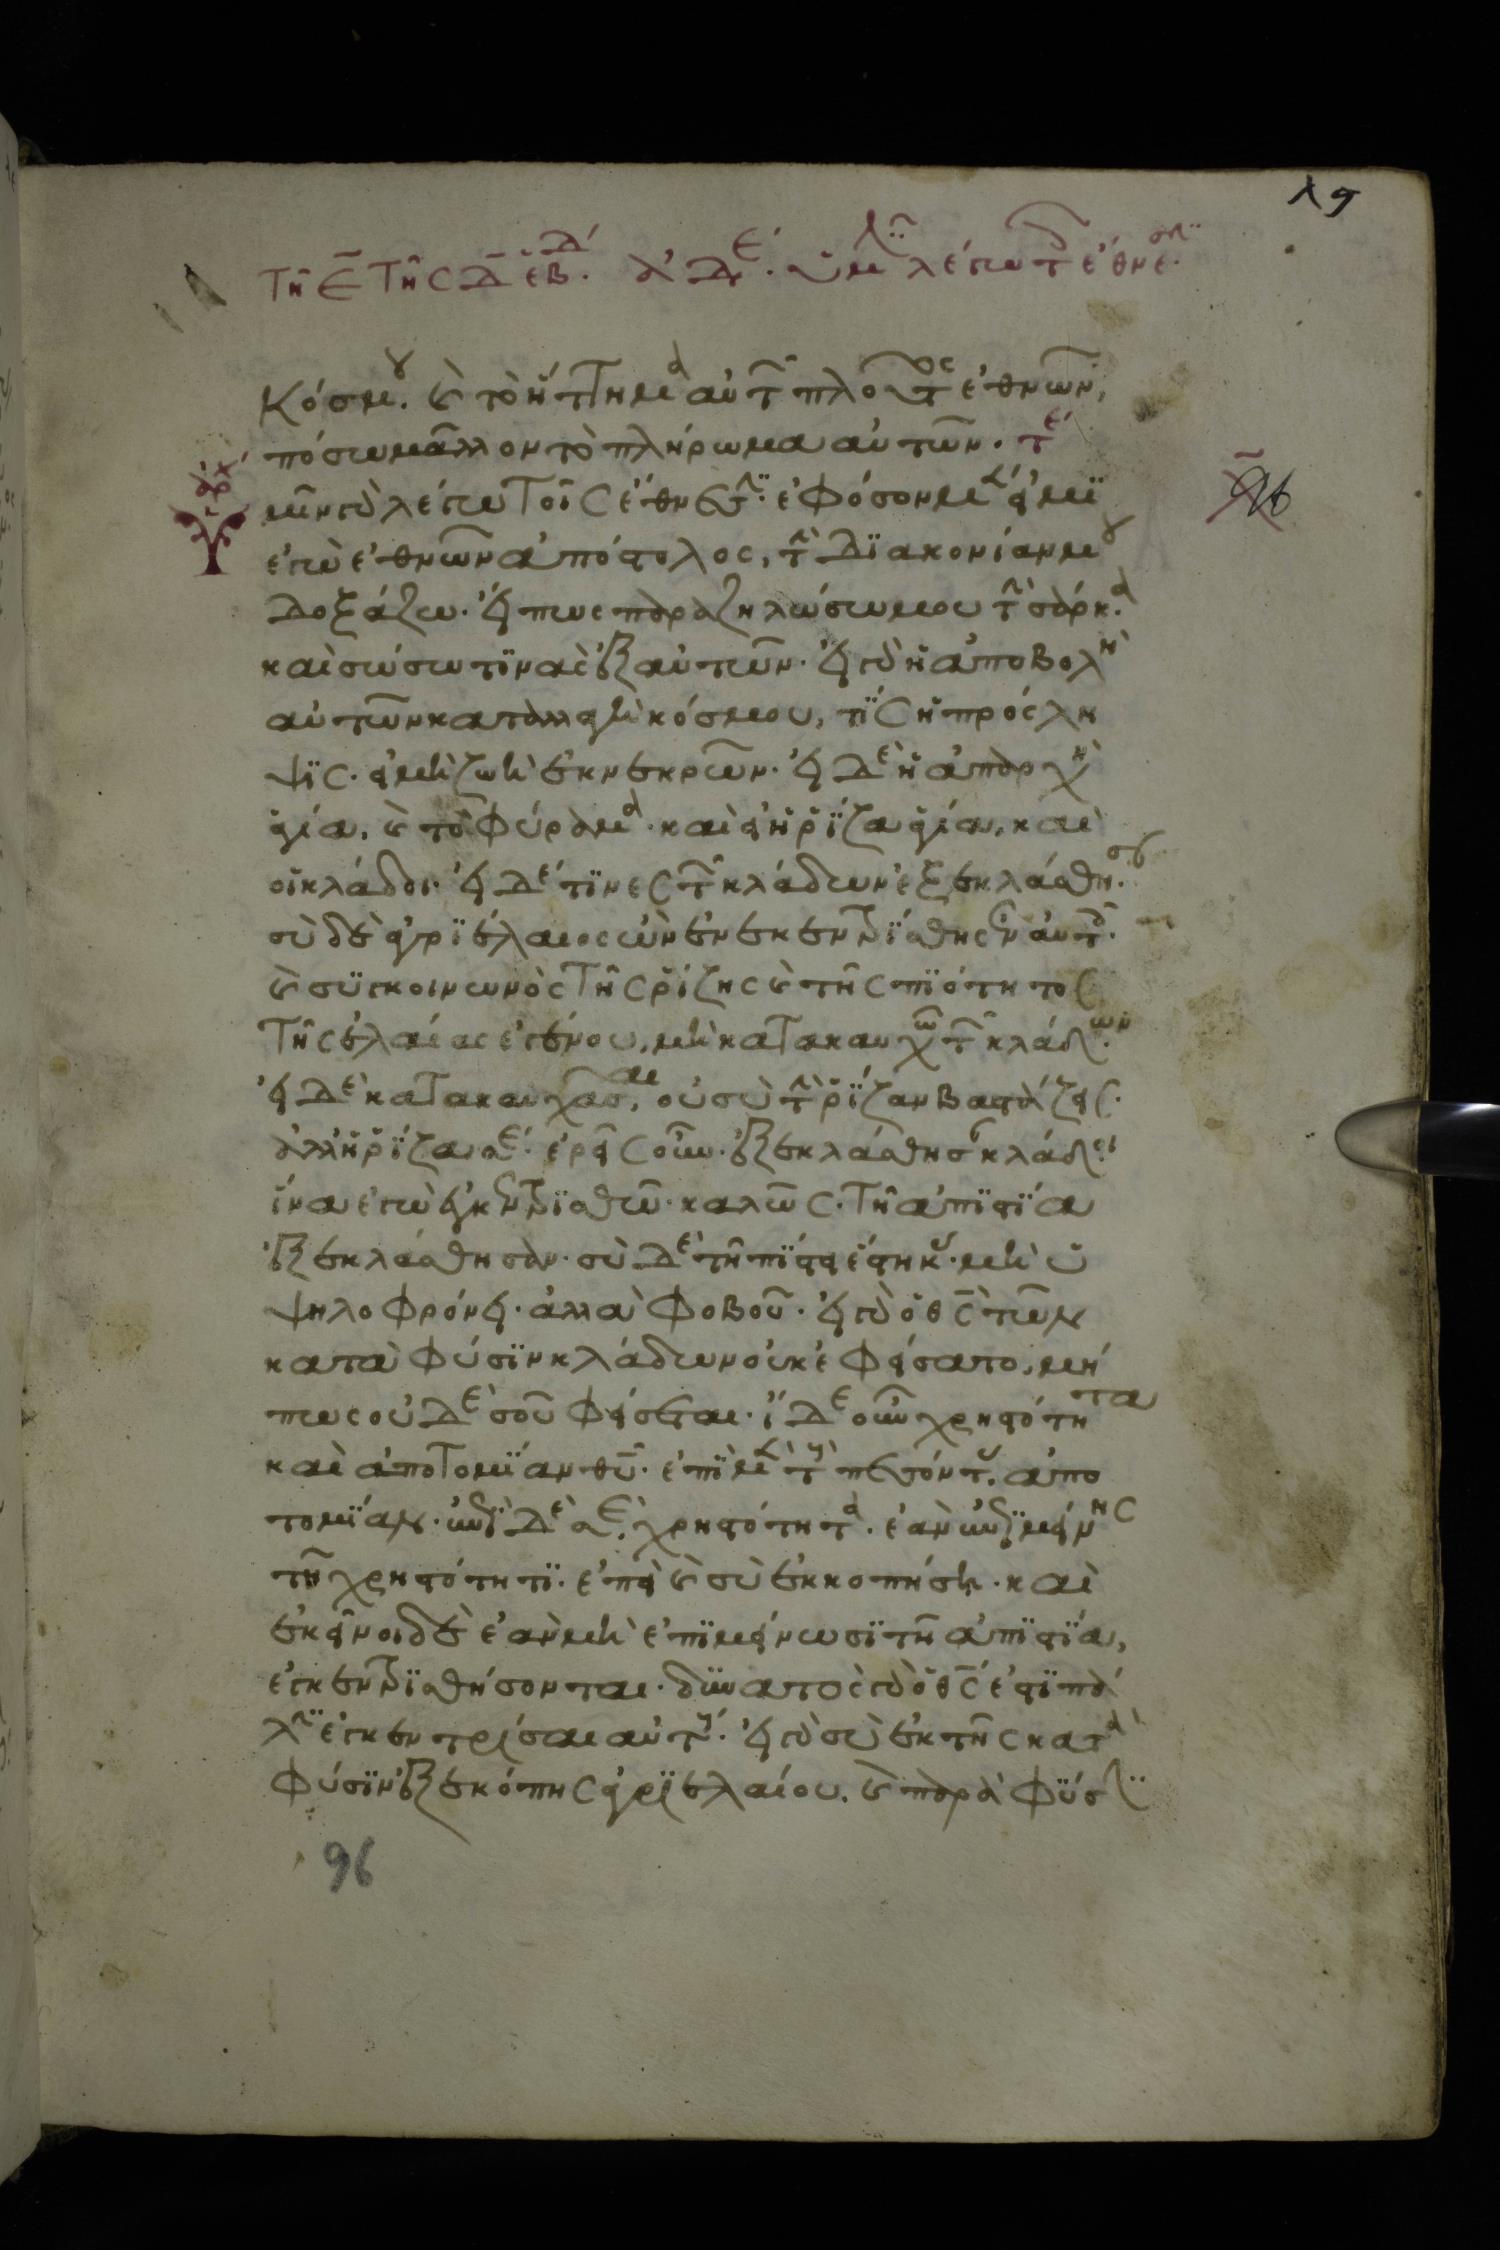 λϛ
Τῆ ε̄ τῆς δ̄ ἑβδ. ἀδε. ὑμῖν λέγω τοῖς ἔθνεσιν.
Κόσμου. καὶ τὸ ἥττημα αὐτῶν πλοῦτος ἐθνῶν,
πόσω μᾶλλον τὸ πλήρωμα αὐτῶν. τέ
ἀρχ
ὑμῖν γὰρ λέγω τοῖς ἔθνεσϊν. ἐφόσον μέν εἰμϊ
96
ἐγὼ ἐθνῶν ἀπόστολος, τὴν δϊακονίαν μου
δοξάζω. εἴπως παραζηλώσω μου τὴν σάρκα
καὶ σώσω τϊνὰς ἐξ αὐτῶν. εἰ γὰρ ἡ ἀποβολὴ
αὐτῶν καταλλαγὴ κόσμου, τϊς ἡ πρόσλη
ψϊς. εἰ μὴ ζωὴ ἐκ νεκρῶν. εἰ δὲ ἡ ἀπαρχὴ
ἁγία, καὶ τὸ φύραμα. καὶ εἰ ἡ ῥϊζα ἁγία, καὶ
οἱ κλάδοι. εἰ δέ τϊνες τῶν κλάδων ἐξεκλάσθησαν.
σὺ δὲ ἀγρϊέλαιος ὢν ἐνεκεντρϊσθης ἐν αὐτοῖς.
καὶ συγκοινωνὸς τῆς ῥίζης καὶ τῆς πϊότητος
τῆς ἐλαίας ἐγένου, μὴ κατακαυχῶ τῶν κλάδων.
εἰ δὲ κατακαυχᾶσαι, οὐ σὺ τὴν ῥϊζαν βαστάζεις.
ἀλλ' ἡ ῥϊζα σέ. ἐρεῖς οὖν. ἐξεκλάσθησαν κλάδοι
ἵνα ἐγὼ ἐγκεντρϊσθῶ. καλῶς. τῆ ἀπϊστϊα
ἐξεκλάσθησαν. σὺ δὲ τῆ πϊστει ἕστηκας. μὴ ὑ
ψηλοφρόνει. ἀλλὰ φοβοῦ. εἰ γὰρ ὁ θς̄ τῶν
κατὰ φύσϊν κλάδων οὐκ ἐφείσατο, μή
πως οὐδὲ σοῦ φείσεται. ἴδε οὖν χρηστότητα
καὶ ἀποτομϊαν θῡ. ἐπϊ μὲν τοὺς πεσόντας, ἀπο
τομϊαν. ἐπϊ δὲ σὲ, χρηστότητα. ἐὰν ἐπϊμείνης
τῆ χρηστότητϊ. ἐπεὶ καὶ σὺ ἐκκοπήση. καὶ
ἐκεῖνοι δὲ ἐὰν μὴ ἐπϊμείνωσϊ τῆ ἀπϊστϊα,
ἐγκεντρϊσθήσονται. δυνατὸς γὰρ ὁ θς̄ ἐστϊ πά
λϊν ἐγκεντρίσαι αὐτούς. εἰ γὰρ σὺ ἐκ τῆς κατὰ
φύσϊν ἐξεκόπης ἀγρϊελαίου. καὶ παρὰ φύσϊν
96